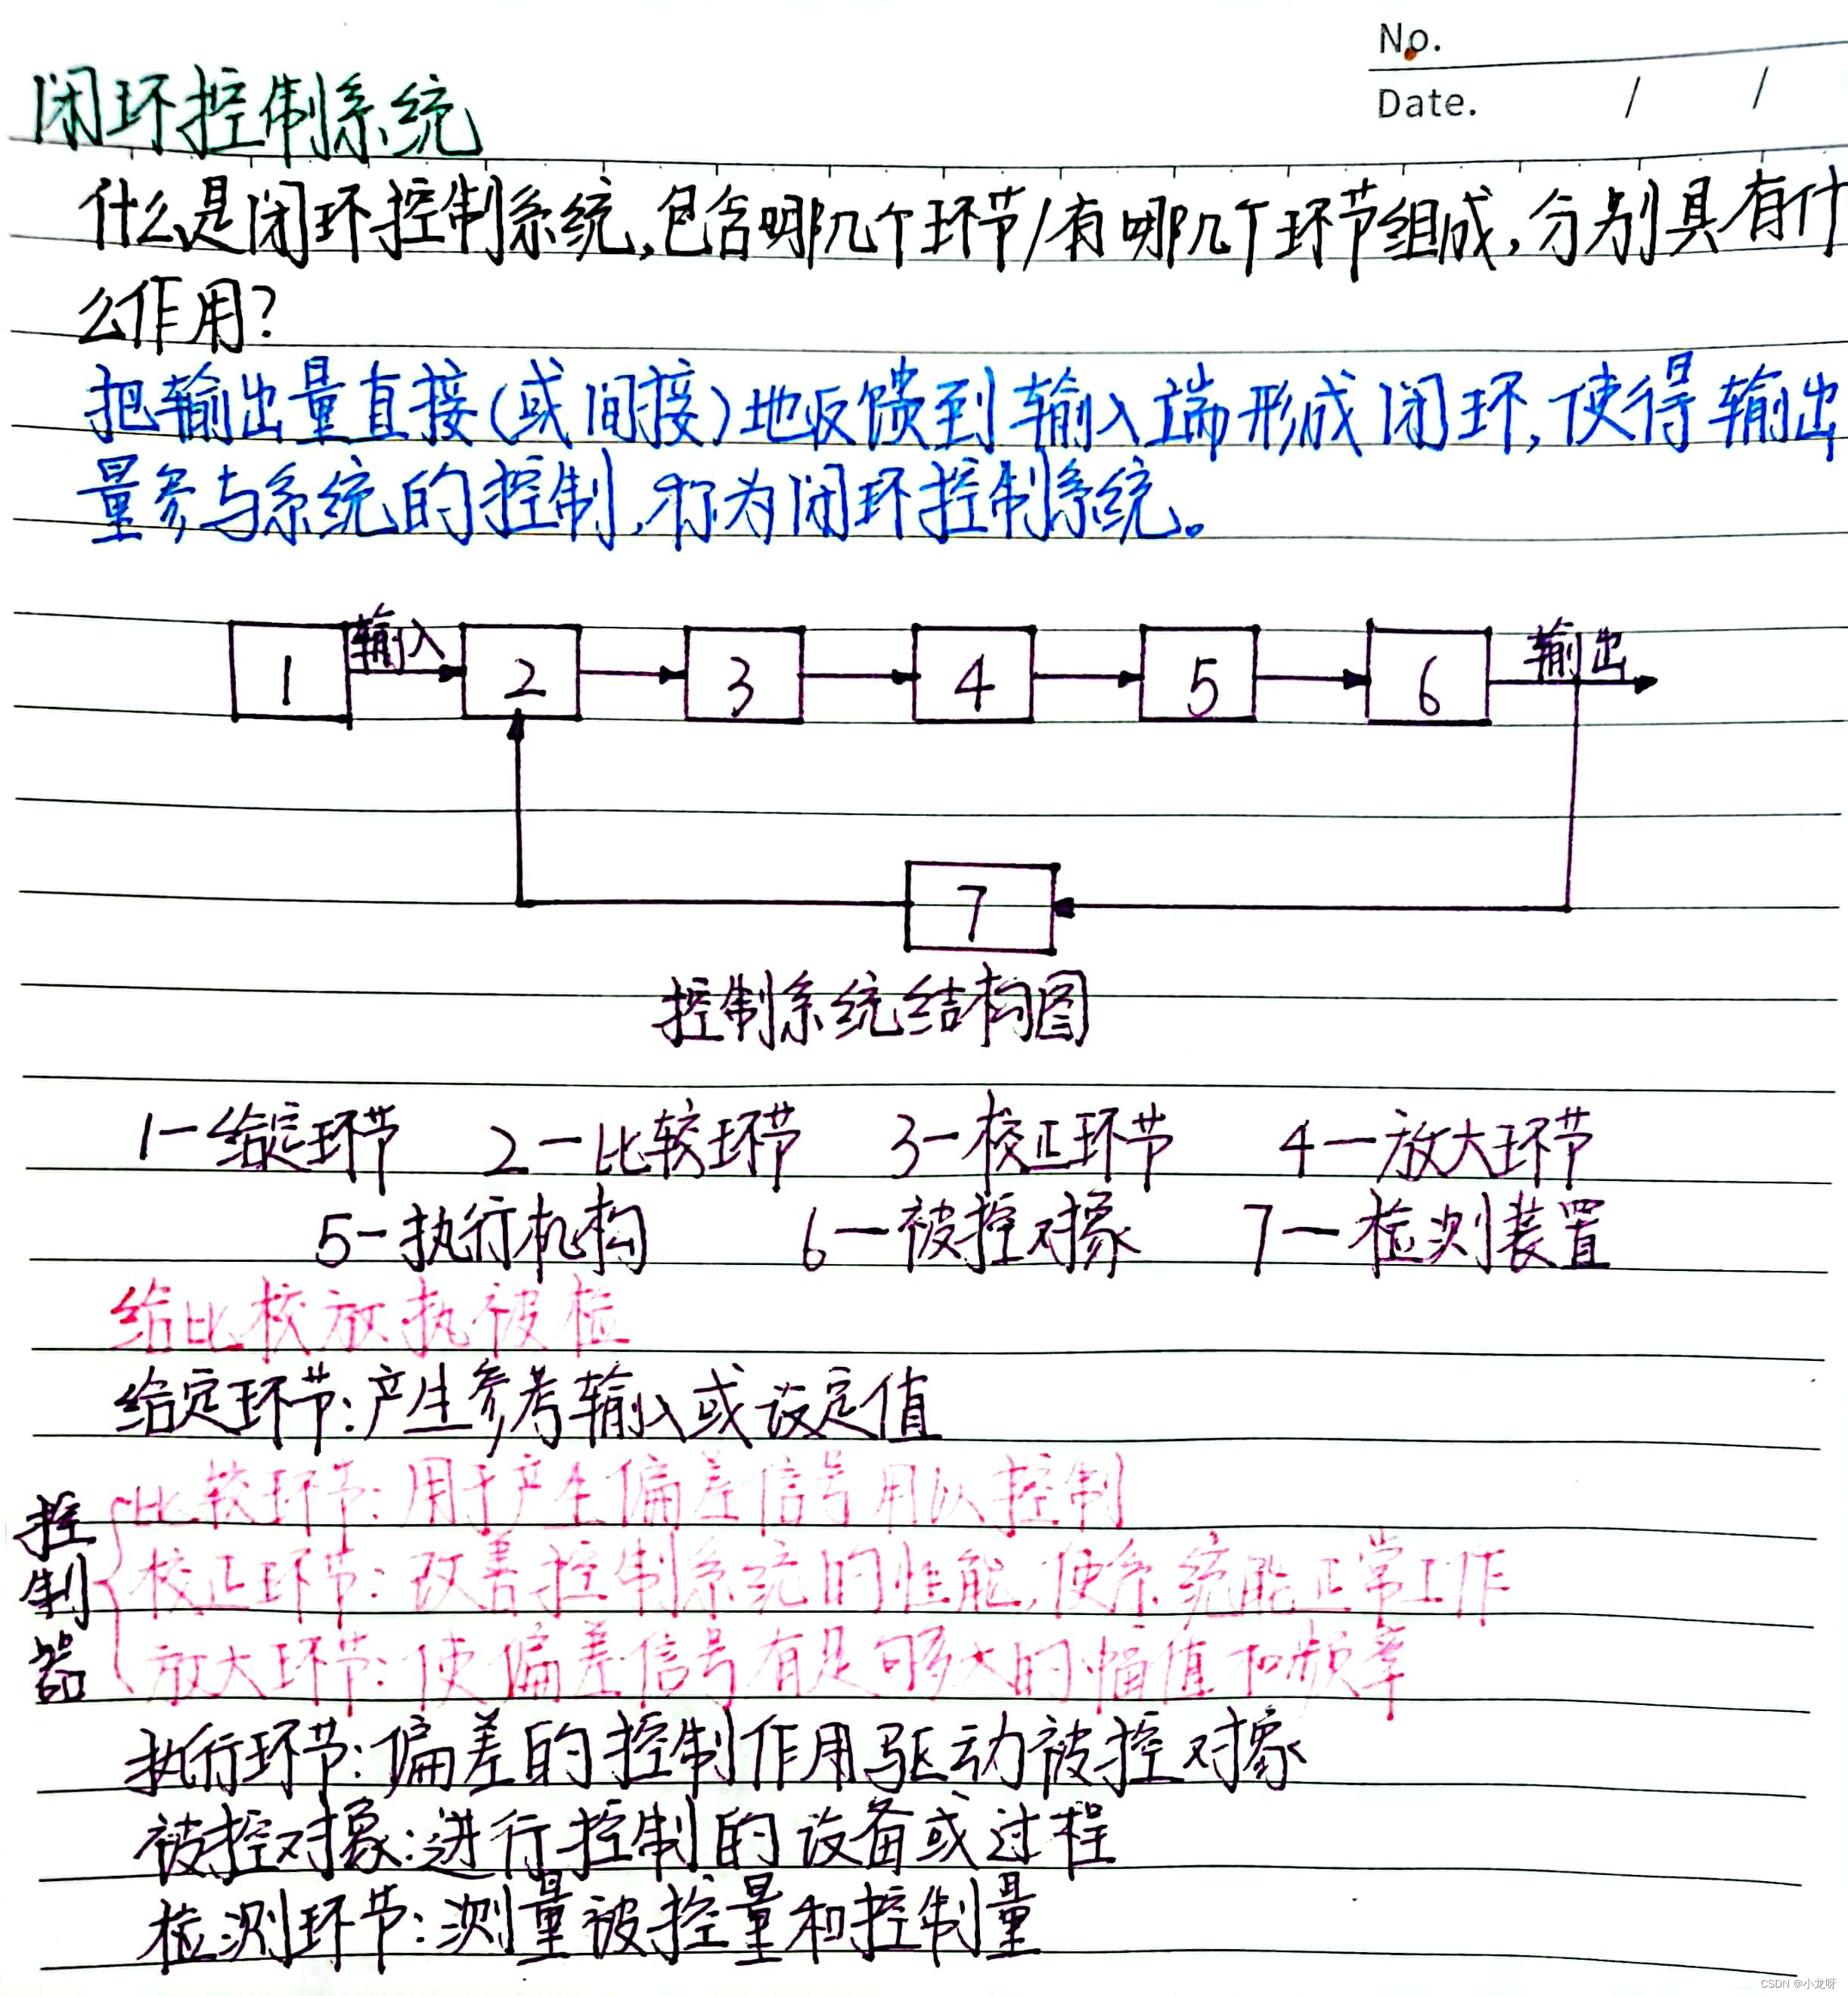 No.
Date. / /
闭环控制系统
什么是闭环控制系统,包含哪几个环节/有哪几个环节组成,分别具有什
么作用?
把输出量直接(或间接)地反馈到输入端形成闭环,使得输出
量参与系统的控制,称为闭环控制系统。
1 输入 2 3 4 5 6 输出
7
控制系统结构图
1—给定环节 2—比较环节 3—校正环节 4—放大环节
5—执行机构 6—被控对象 7—检测装置
给比校放执被检
给定环节:产生参考输入或设定值
控制器
比较环节:用于产生偏差信号用以控制
校正环节:改善控制系统的性能,使系统能正常工作
放大环节:使偏差信号有足够大的幅值和频率
执行环节:偏差的控制作用驱动被控对象
被控对象:进行控制的设备或过程
检测环节:测量被控量和控制量
CSDN @小龙呀